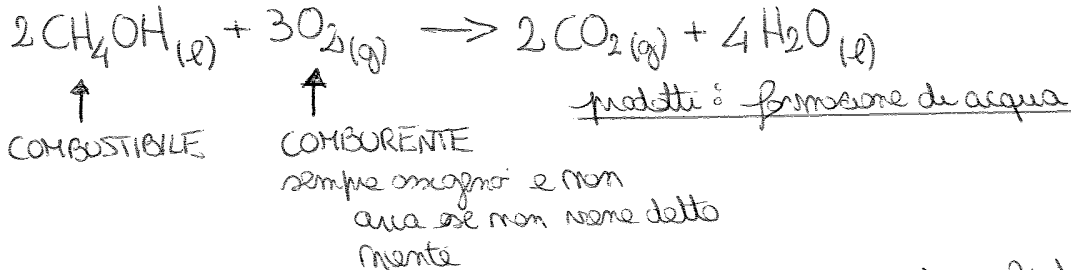 2CH₄OH(l) + 3O₂(g) → 2CO₂(g) + 4H₂O(l)
prodotti: formazione di acqua
COMBUSTIBILE COMBURENTE
sempre ossigeno e non
aria se non viene detto
niente